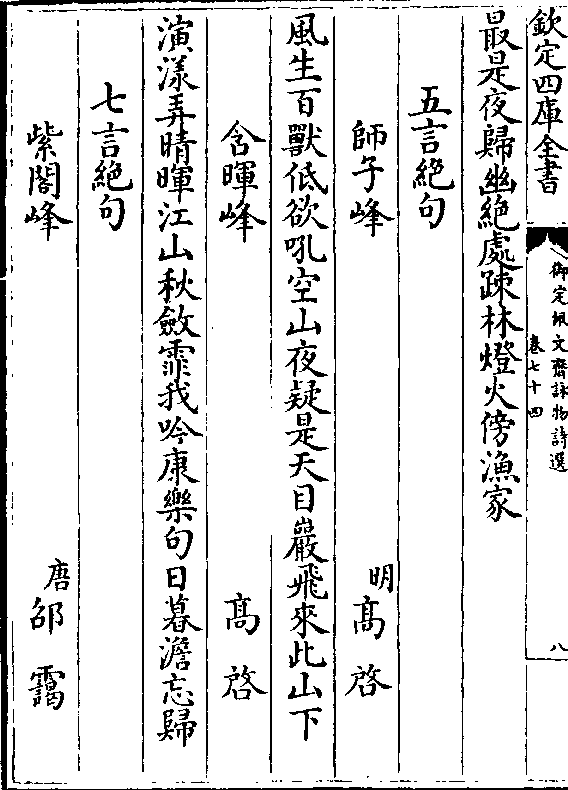 欽定四庫全書
御定佩文齋詠物詩選
卷七十四
八
最是夜歸幽絕處疎林燈火傍漁家
五言絕句
師子峰
明高啓
風生百獸低欲吼空山夜疑是天目巖飛來此山下
含暉峰
高啓
演漾弄晴暉江山秋斂霏我吟康樂句日暮澹忘歸
七言絕句
紫閣峰
唐邵靄